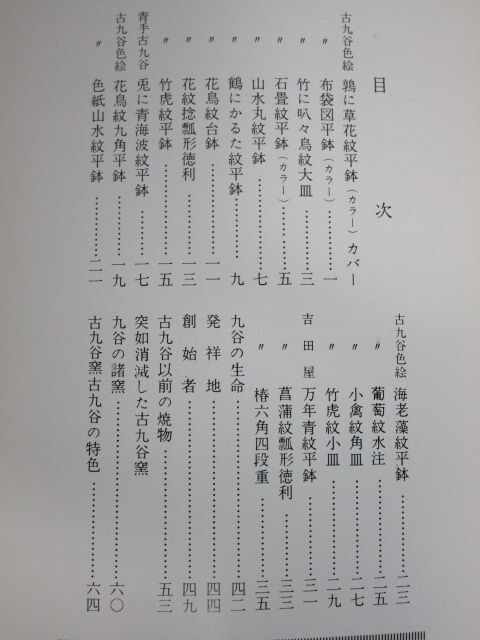 目次
古九谷色絵 鶉に草花紋平鉢(カラー) カバー
〃 布袋図平鉢(カラー)…………一
〃 竹に叭々鳥紋大皿…………三
〃 石畳紋平鉢(カラー)…………五
〃 山水丸紋平鉢…………七
〃 鶴にかるた紋平鉢…………九
〃 花鳥紋台鉢…………一一
〃 花紋捻瓢形徳利…………一三
〃 竹虎紋平鉢…………一五
青手古九谷 兎に青海波紋平鉢…………一七
古九谷色絵 花鳥紋九角平鉢…………一九
〃 色紙山水紋平鉢…………二一
古九谷色絵 海老藻紋平鉢…………二三
〃 葡萄紋水注…………二五
〃 小禽紋角皿…………二七
〃 竹虎紋小皿…………二九
吉田屋 万年青紋平鉢…………三一
〃 菖蒲紋瓢形徳利…………三三
〃 椿六角四段重…………三五
九谷の生命…………四二
発祥地…………四四
創始者…………四九
古九谷以前の焼物…………五三
突如消滅した古九谷窯
九谷の諸窯…………六〇
古九谷窯古九谷の特色…………六四